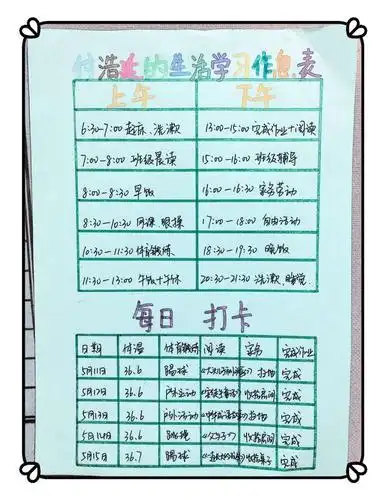 付浩 的生活学习作息表
上午 下午
6:30-7:00 起床、洗漱 13:00-15:00 完成作业+阅读
7:00-8:00 班级晨读 15:00-16:00 班级辅导
8:00-8:30 早饭 16:00-16:30 家务劳动
8:30-10:30 网课 眼操 17:00-18:00 自由活动
10:30-11:30 体育锻炼 18:30-19:30 晚饭
11:30-13:00 午饭+午休 20:30-21:30 洗漱、睡觉
每日 打卡
日期 体温 体育锻炼 阅读 家务 完成作业
5月11日 36.6 踢球 扫地 完成
5月12日 36.6 户外运动 收拾房间 完成
5月13日 36.6 户外活动 扫地 完成
5月14日 36.6 跳绳 收拾房间 完成
5月15日 36.7 踢球 收拾桌子 完成